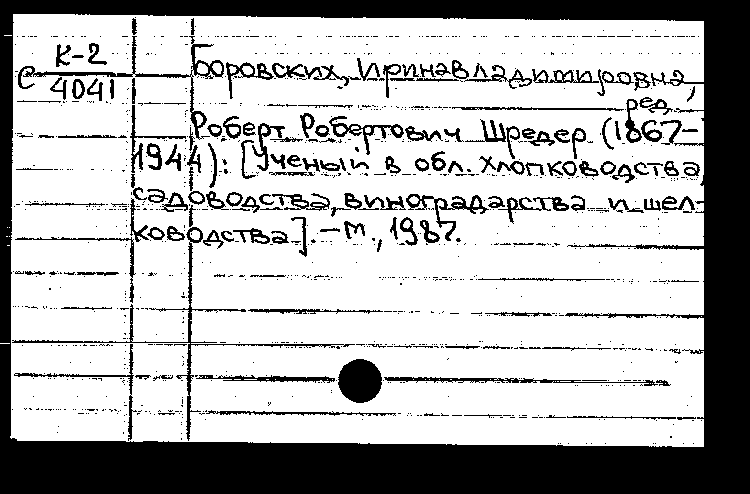 К-2
С 4041
Боровских, Ирина Владимировна,
ред.
Роберт Робертович Шредер (1867-
1944): [Ученый в обл. хлопководства,
садоводства, виноградарства и шел-
ководства]. – М., 1987.